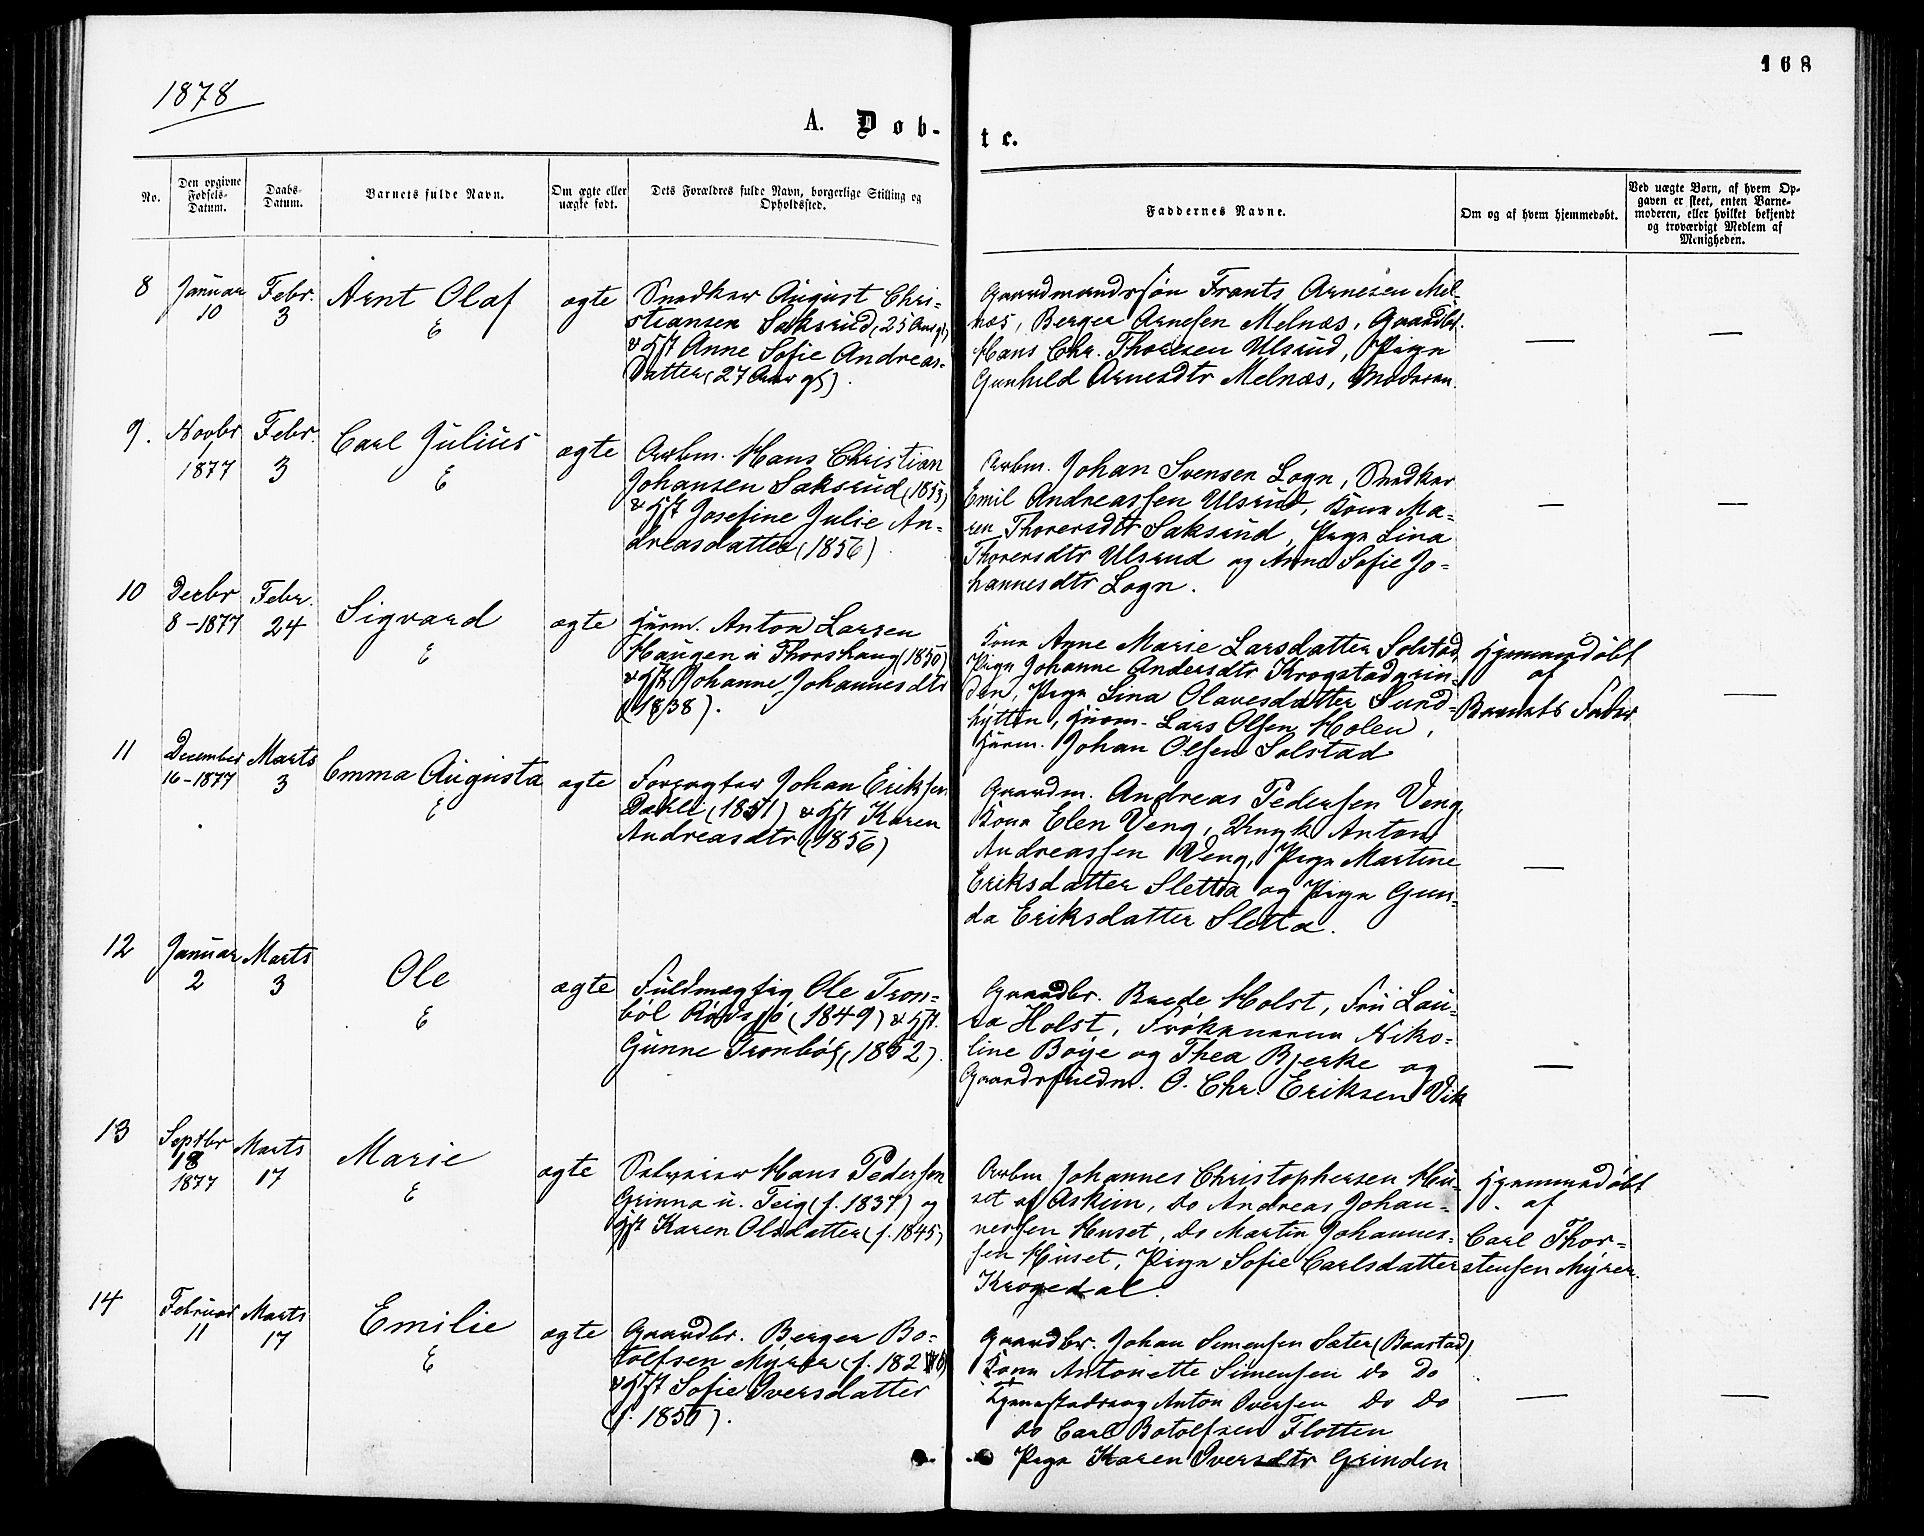 168
1878
A. Døb-
te.
No.
Den opgivne Fødsels-Datum.
Daabs-Datum.
Barnets fulde Navn.
Om ægte eller uægte født.
Dets Forældres fulde Navn, borgerlige Stilling og Opholdssted.
Faddernes Navne.
Om og af hvem hjemmedøbt.
Ved uægte Børn, af hvem Opgaven er skeet, enten Barnemoderen, eller hvilket bekjendt og troværdigt Medlem af Menigheden.
8
Januar
10
Febr.
3
Arnt Olaf
E
ægte
Snedker August Chri-
stiansen Saksrud (25 Aar gl)
& Hst Anne Sofie Andreas-
datter (27 Aar gl).
Gaardmandssøn Frants Arnesen Mel-
næs, Berger Arnesen Melnæs, Gaardbr.
Hans Chr. Thoresen Ulsrud, Pige
Gunhild Arnesdtr Melnæs, Moderen.
—
—
9.
Novbr
1877
Febr.
3
Carl Julius
E
ægte
Arbm. Hans Christian
Johansen Saksrud (1853)
& Hst Josefine Julie An-
dreasdatter (1856)
Arbm. Johan Svensen Logn, Snedker
Emil Andreassen Ulsrud, Kona Ma-
ren Thorersdtr Saksrud, Pige Lina
Thorersdtr Ulsrud og Anne Sofie Jo-
hannesdtr Logn.
—
—
10
Decbr
8-1877
Febr.
24
Sigvard
E
ægte
Husm. Anton Larsen
Haugen u Thorshaug (1850)
& Hst Johanne Johannesdtr
(1838).
Kona Anne Marie Larsdatter Solstad,
Pige Johanne Andersdtr Krogstadgrin-
den, Pige Lina Olavesdatter Sund-
hytten, Husm. Lars Olsen Holen,
Husm. Johan Olsen Solstad
Hjemmedøbt
af
Barnets Fader
—
11
December
16-1877
Marts
3
Emma Augusta
E
ægte
Forpagter Johan Eriksen
Dahli (1851) & Hst Karen
Andreasdtr (1856)
Gaardm. Andreas Pedersen Veng,
Kona Elen Veng, Ungk Anton
Andreassen Veng, Pige Martine
Eriksdatter Sletta og Pige Gun-
da Eriksdatter Sletta.
—
12
Januar
2
Marts
3
Ole
E
ægte
Fuldmægtig Ole Tron-
bøl Rødsjø (1849) & Hst.
Gunne Tronbøl (1852).
Gaardbr. Brede Holst, Fru Lau-
ra Holst, Frøknerne Niko-
line Bøye og Thea Bjerke og
Gaardsfuldm. O. Chr. Eriksen Vik
—
13
Septbr
18
1877
Marts
17
Marie
E
ægte
Selveier Hans Pedersen
Grinna u. Teig (f. 1837) og
Hst Karen Olsdatter (f. 1845)
Arbm Johannes Christophersen Hu-
set af Askim, do Andreas Johan-
nessen Huset, do Martin Johannes-
sen Huset, Pige Sofie Carlsdatter
Krogedal.
Hjemmedøbt
af
Carl Thor-
stensen Myrer.
14
Februar
11
Marts
17
Emilie
E
ægte
Gaardbr. Berger Bo-
tolfsen Myrer (f. 182 )
& Hst Sofie Iversdatter
(f. 1850).
Gaardbr. Johan Simensen Sæter (Baastad)
Kona Antoniette Simensen do do
Anton Iversen do do
do Carl Botolfsen Flotten
Pige Karen Iversdtr Grinden
—
—